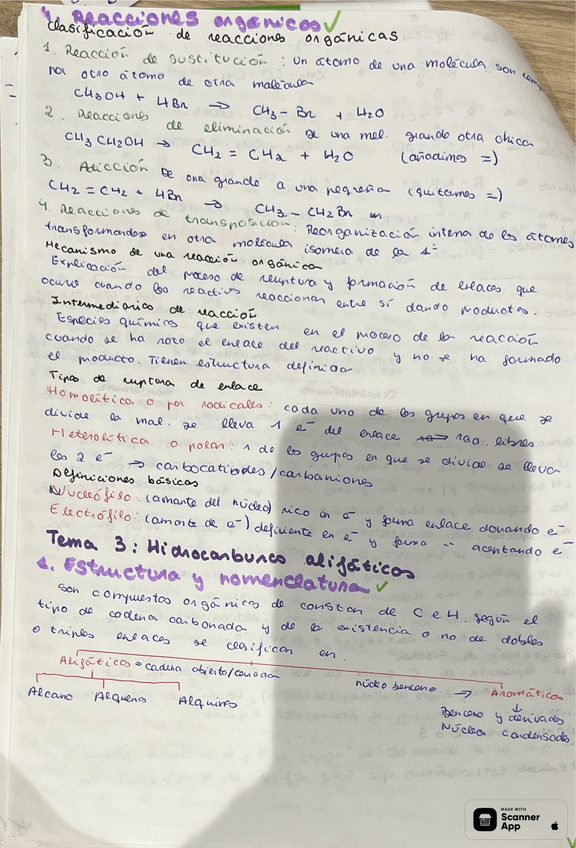 4. Reacciones orgánicos ✓
Clasificación de reacciones orgánicas
1. Reacción de sustitución: Un átomo de una molécula son
por otro átomo de otra molécula
CH3OH + HBr → CH3-Br + H2O
2. Reacciones de eliminación de una mol. grande otra chica
CH3CH2OH → CH2=CH2 + H2O (añadimos =)
3. Adicción De una grande a una pequeña (quitamos =)
CH2=CH2 + HBr → CH3-CH2Br
4. Reacciones de transposición: Reorganización interna de los átomos
transformándos en otra molécula isomera de la 1ª
Mecanismo de una reacción orgánica
Explicación del proceso de ruptura y formación de enlaces que
ocurre cuando los reactivos reaccionan entre sí dando productos.
Intermediarios de reacción
Especies químicas que existen en el proceso de la reacción
cuando se ha roto el enlace del reactivo y no se ha formado
el producto. Tienen estructura definida
Tipos de ruptura de enlace
Homolítica o por radicales: cada uno de los grupos en que se
divide la mol. se lleva 1 e⁻ del enlace → rad. libres
Heterolítica o polar: 1 de los grupos en que se divide se lleva
los 2 e⁻ → carbocationes/carbaniones
Definiciones básicas
Nucleófilo: (amante del núcleo) rico en e⁻ y forma enlace donando e⁻
Electrófilo: (amante de e⁻) deficiente en e⁻ y forma -- aceptando e⁻
Tema 3: Hidrocarburos alifáticos
1. Estructura y nomenclatura ✓
Son compuestos orgánicos de constan de C e H. según el
tipo de cadena carbonada y de la existencia o no de dobles
o triples enlaces se clasifican en:
Alifáticos → cadena abierta/cerrada núcleo benceno → Aromáticos
Alcano Alquenos Alquinos
Benceno y derivados
Núcleos condensados
MADE WITH
Scanner
App